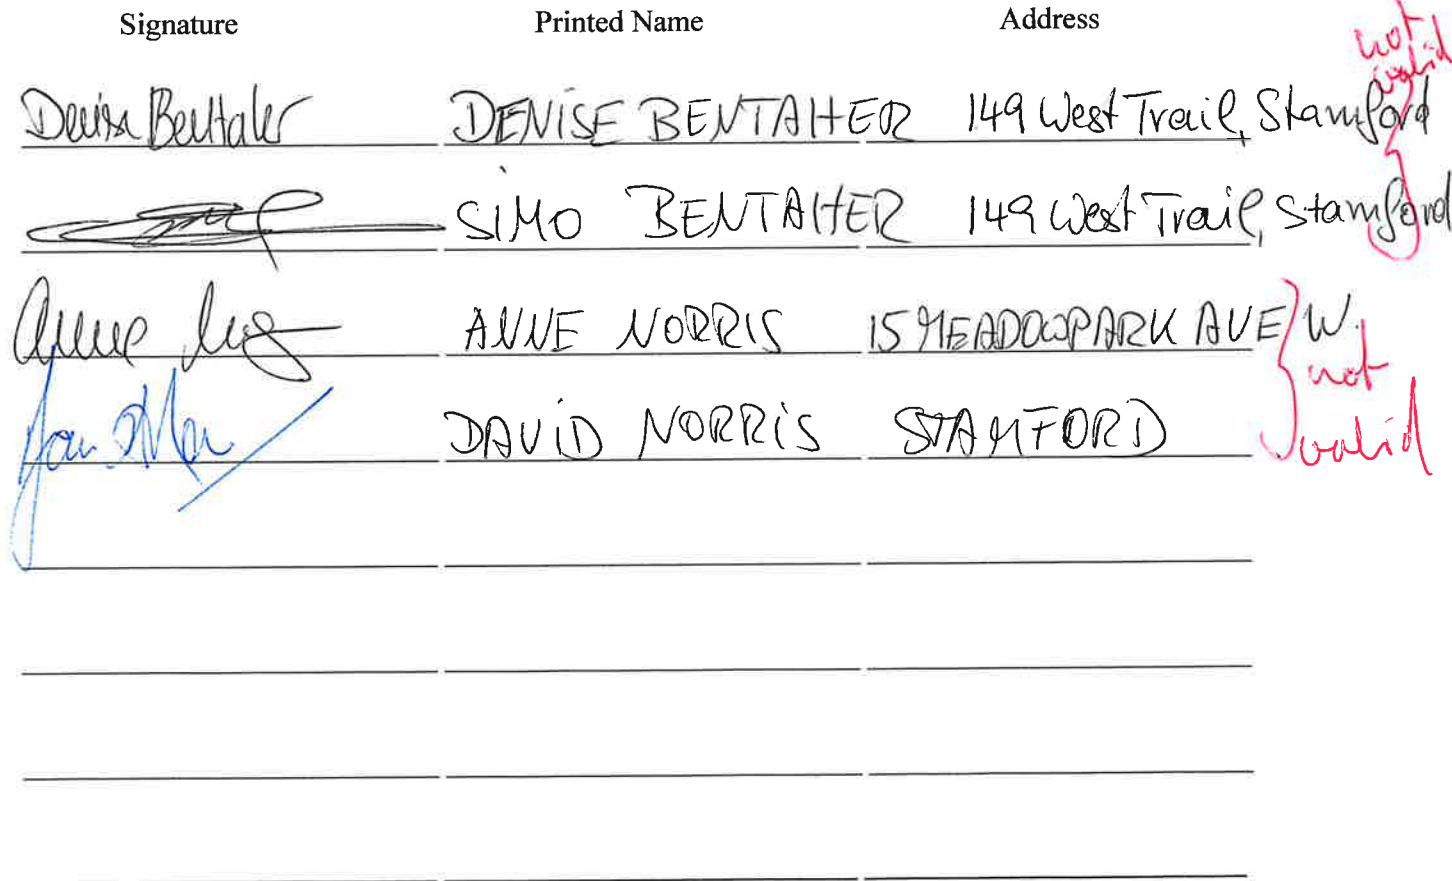 Signature Printed Name Address
not
valid
Denise Bentaher DENISE BENTAHER 149 West Trail, Stamford
SIMO BENTAHER 149 West Trail, Stamford
Anne ANNE NORRIS 15 MEADOWPARK AVE W.
not
DAVID NORRIS STAMFORD
valid